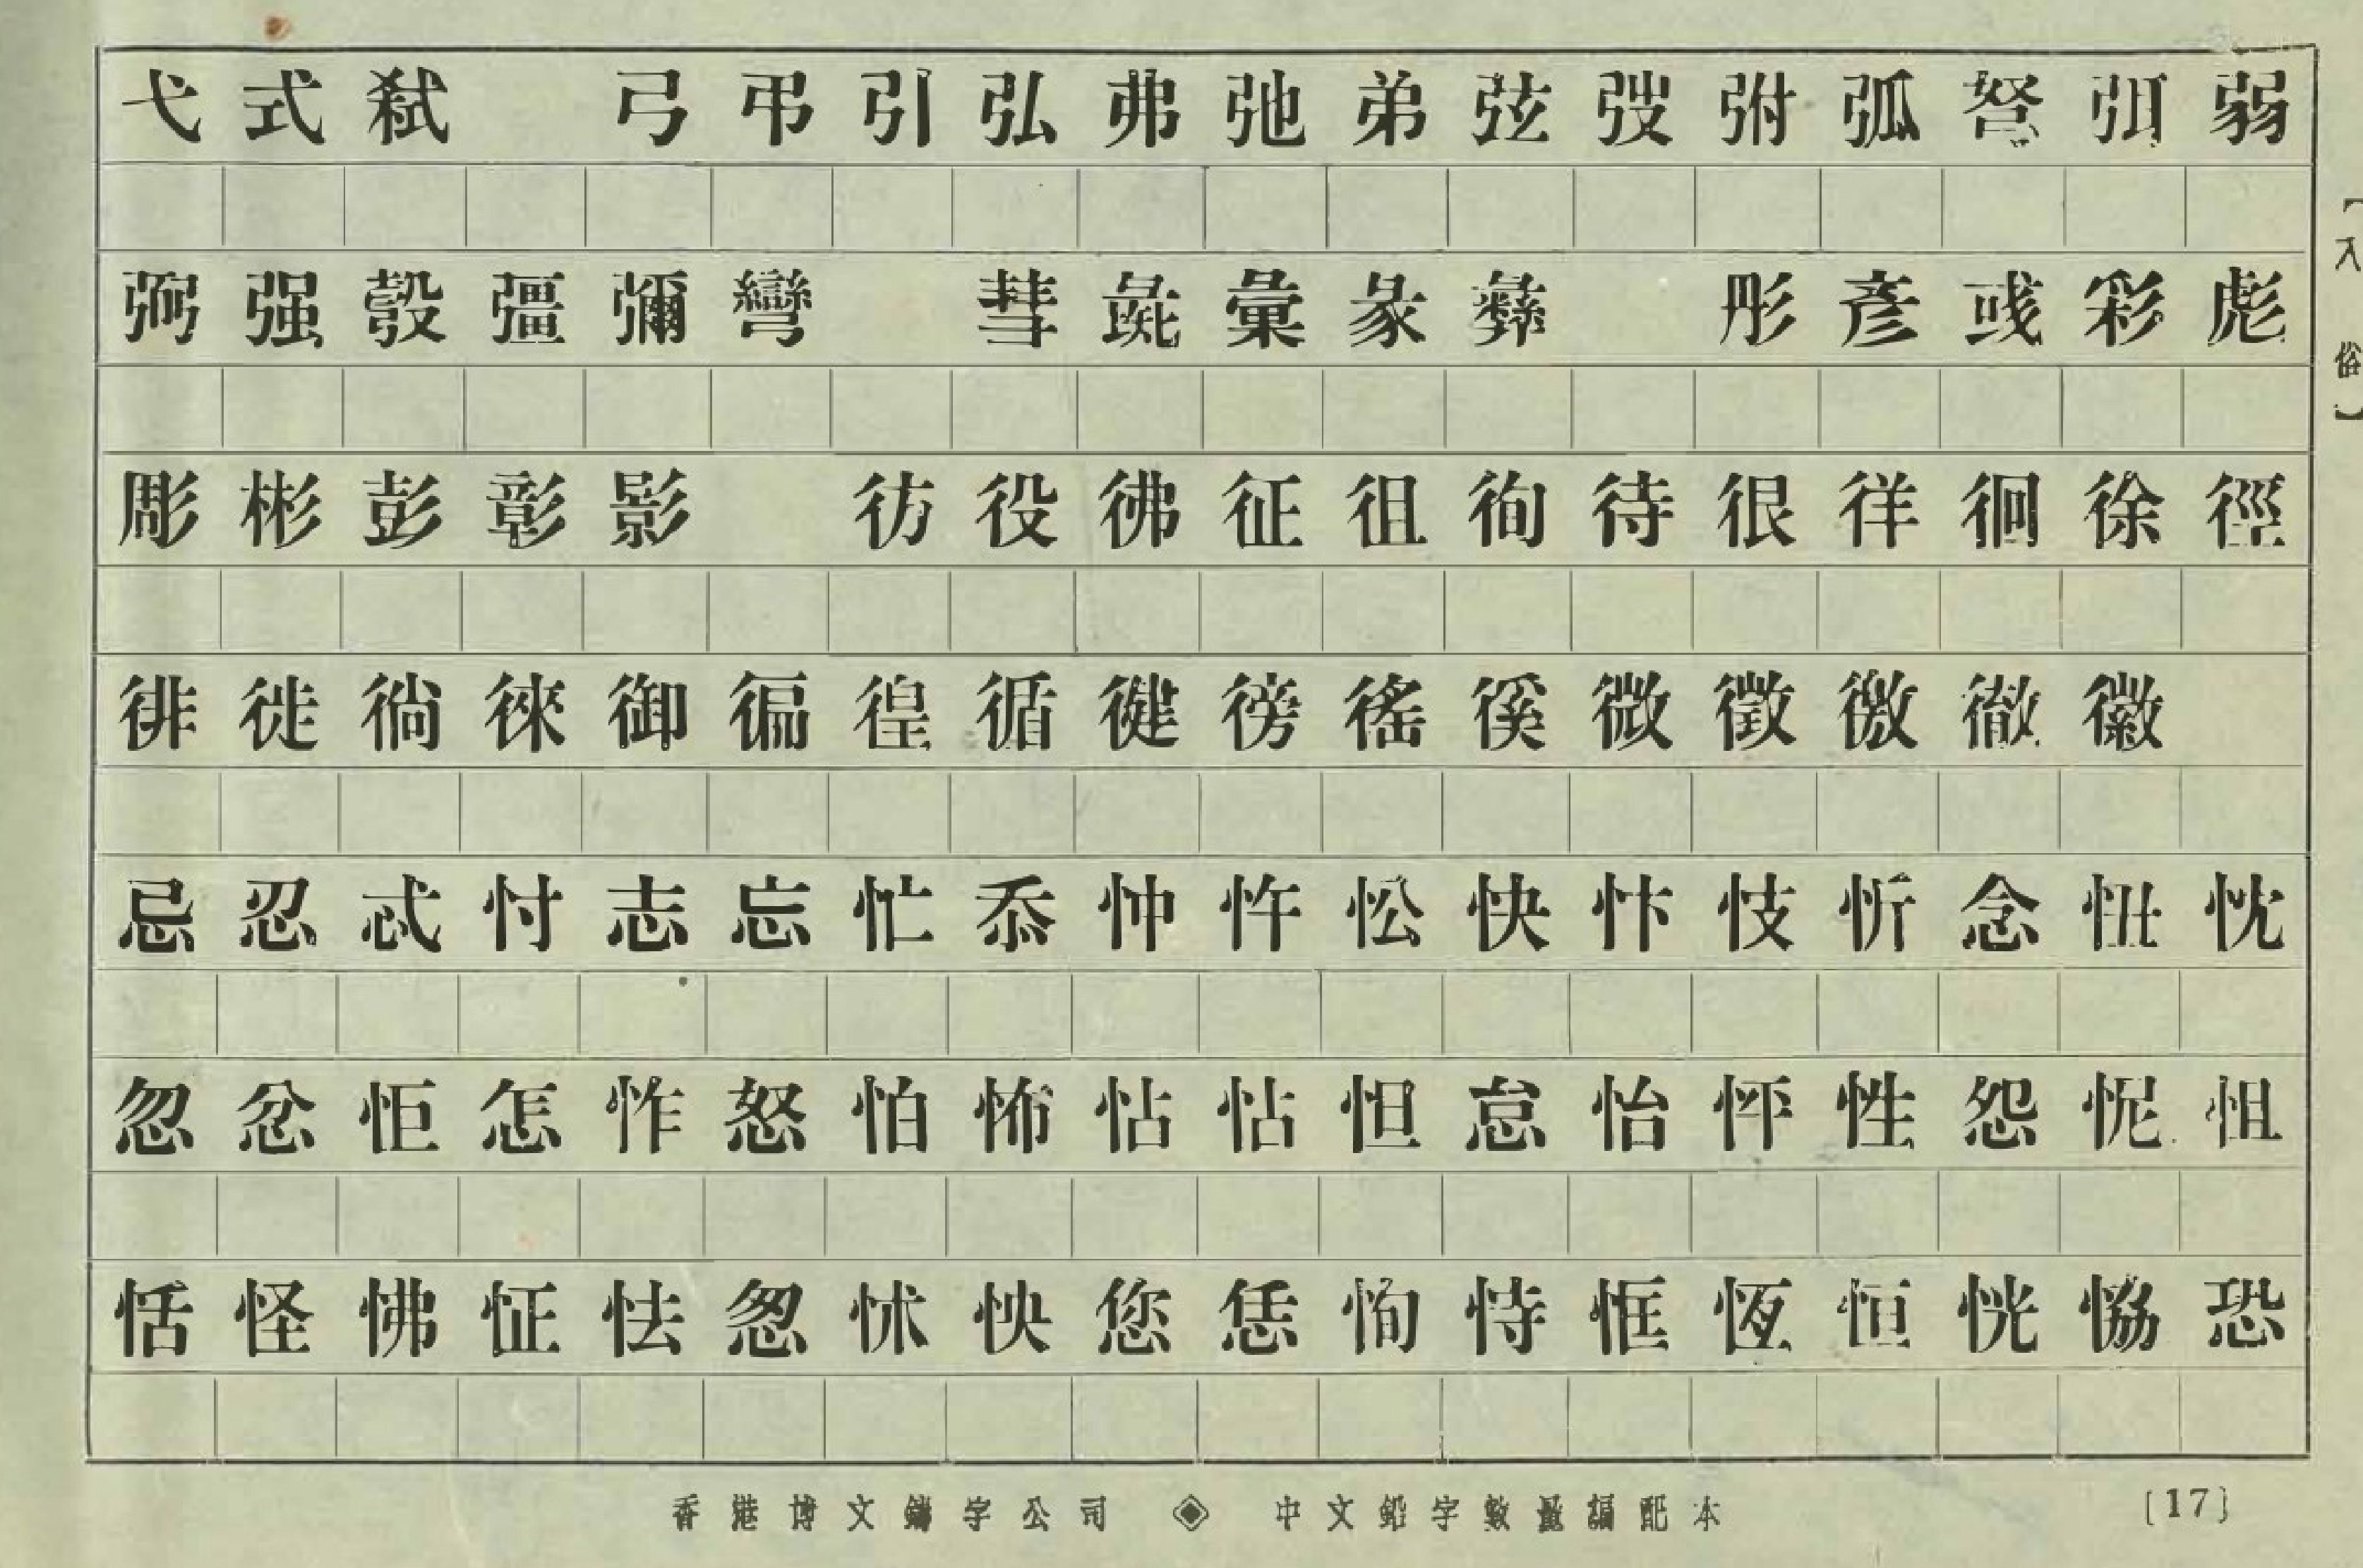 弋式弑　弓弔引弘弗弛弟弦弢弣弧弩弭弱
弼强彀彊彌彎　彗彘彙彖彝　彤彥彧彩彪
彫彬彭彰影　彷役彿征徂徇待很徉徊徐徑
徘徙徜徠御徧徨循徤徬徭徯微徵徼徹徽
忌忍忒忖志忘忙忝忡忤忪快忭忮忻念忸忱
忽忿怇怎怍怒怕怖怗怙怛怠怡怦性怨怩怚
恬怪怫怔怯怱怵怏您恁恂恃恇恆恒恍恊恐
【入　俗】
香港博文鑄字公司 ◈ 中文鉛字數量謳配本
[17]